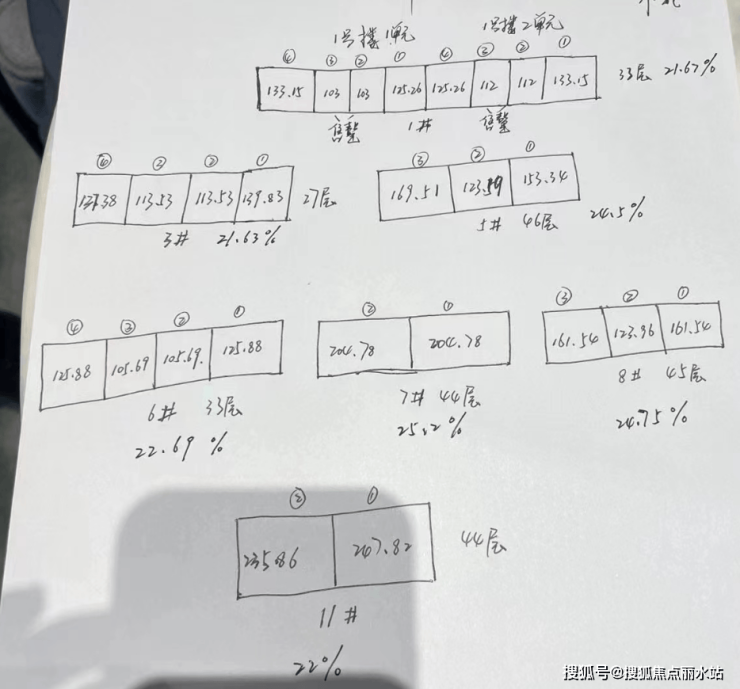 1号楼1单元 1号楼2单元
④ ③ ② ① ④ ③ ② ①
133.15 103 103 125.26 125.26 112 112 133.15
33层 21.67%
售罄 1# 售罄
④ ③ ② ①
113.53 113.53 139.83
27层
3# 21.63%
③ ② ①
169.51 123.59 153.34
5# 46层 24.5%
④ ③ ② ①
125.88 105.69 105.69. 125.88
6# 33层
22.69%
② ①
204.78 204.78
7# 44层
25.2%
③ ② ①
161.54 123.96 161.54
8# 45层
24.75%
② ①
235.86 247.82
44层
11#
22%
搜狐号@搜狐焦点丽水站